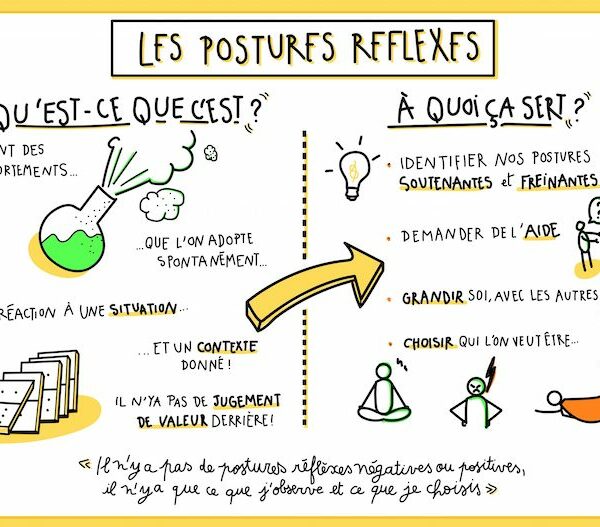 LES POSTURES REFLEXES
QU'EST-CE QUE C'EST ?
DES
...QUE L'ON ADOPTE
SPONTANÉMENT...
RÉACTION À UNE SITUATION...
...ET UN CONTEXTE
DONNÉ !
IL N'YA PAS DE JUGEMENT
DE VALEUR DERRIÈRE !
À QUOI ÇA SERT ?
• IDENTIFIER NOS POSTURES
SOUTENANTES et FREINANTES
• DEMANDER DE L'AIDE
?
• GRANDIR SOI, AVEC LES AUTRES
• CHOISIR QUI L'ON VEUT ÊTRE...
« Il n'y a pas de postures réflèxes négatives ou positives,
il n'y a que ce que j'observe et ce que je choisis »